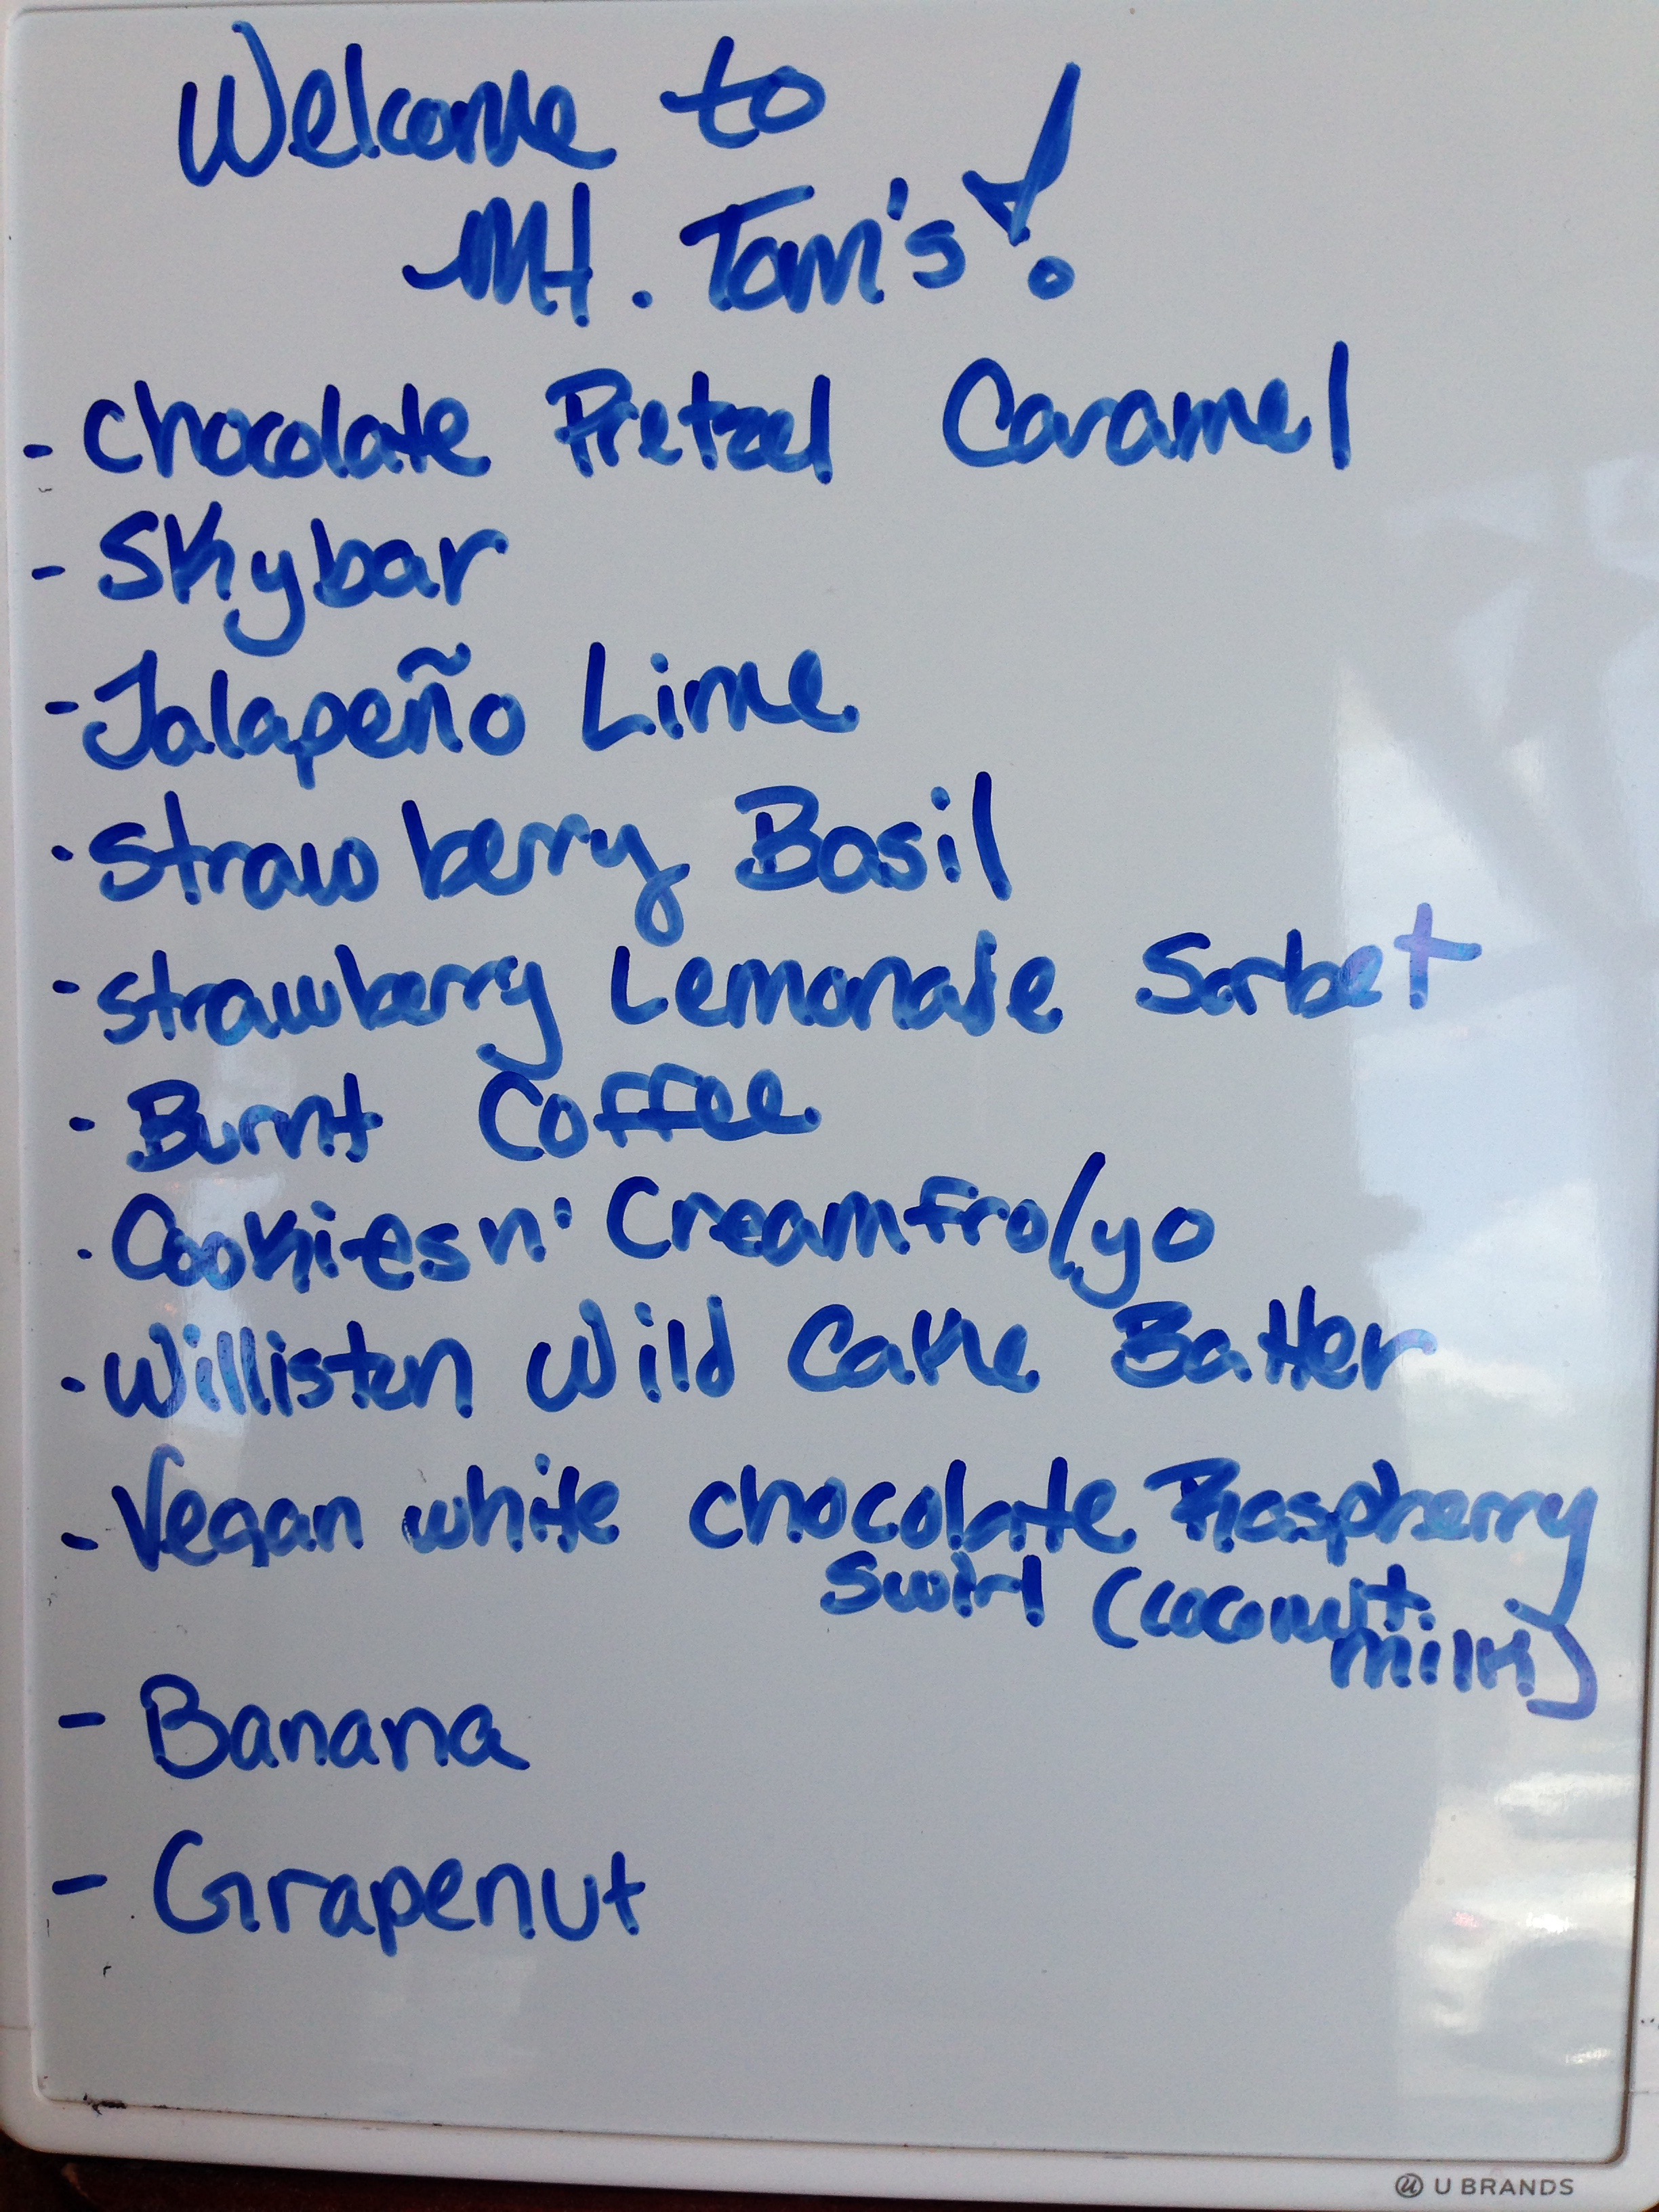 Welcome to
Mt. Tom's!
- Chocolate Pretzel Caramel
- Skybar
- Jalapeño Lime
- Strawberry Basil
- Strawberry Lemonade Sorbet
- Burnt Coffee
- Cookies n' Cream fro/yo
- Williston Wild Cake Batter
- Vegan white chocolate Raspberry
swirl (coconut
milk)
- Banana
- Grapenut
U BRANDS